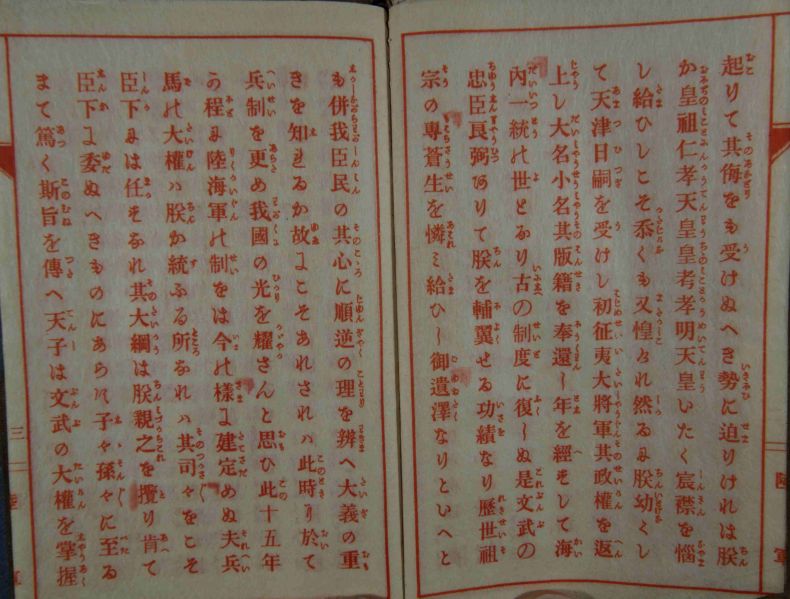 起りて其侮をも受けぬへき勢に迫りけれは朕
か皇祖仁孝天皇皇考孝明天皇いたく宸襟を惱
し給ひしこそ忝くも又惶けれ然るに朕幼くし
て天津日嗣を受けし初征夷大將軍其政權を返
上し大名小名其版籍を奉還し年を經すして海
內一統の世となり古の制度に復しぬ是文武の
忠臣良弼ありて朕を輔翼せる功績なり歷世祖
宗の專蒼生を憐み給ひし御遺澤なりといへと
も併我臣民の其心に順逆の理を辨へ大義の重
きを知れるか故にこそあれされハ此時に於て
兵制を更め我國の光を耀さんと思ひ此十五年
の程に陸海軍の制をは今の樣に建定めぬ夫兵
馬の大權ハ朕か統ふる所なれハ其司々をこそ
臣下には任すなれ其大綱は朕親之を攬り肯て
臣下に委ぬへきものにあらす子々孫々に至る
まて篤く斯旨を傳へ天子は文武の大權を掌握
三